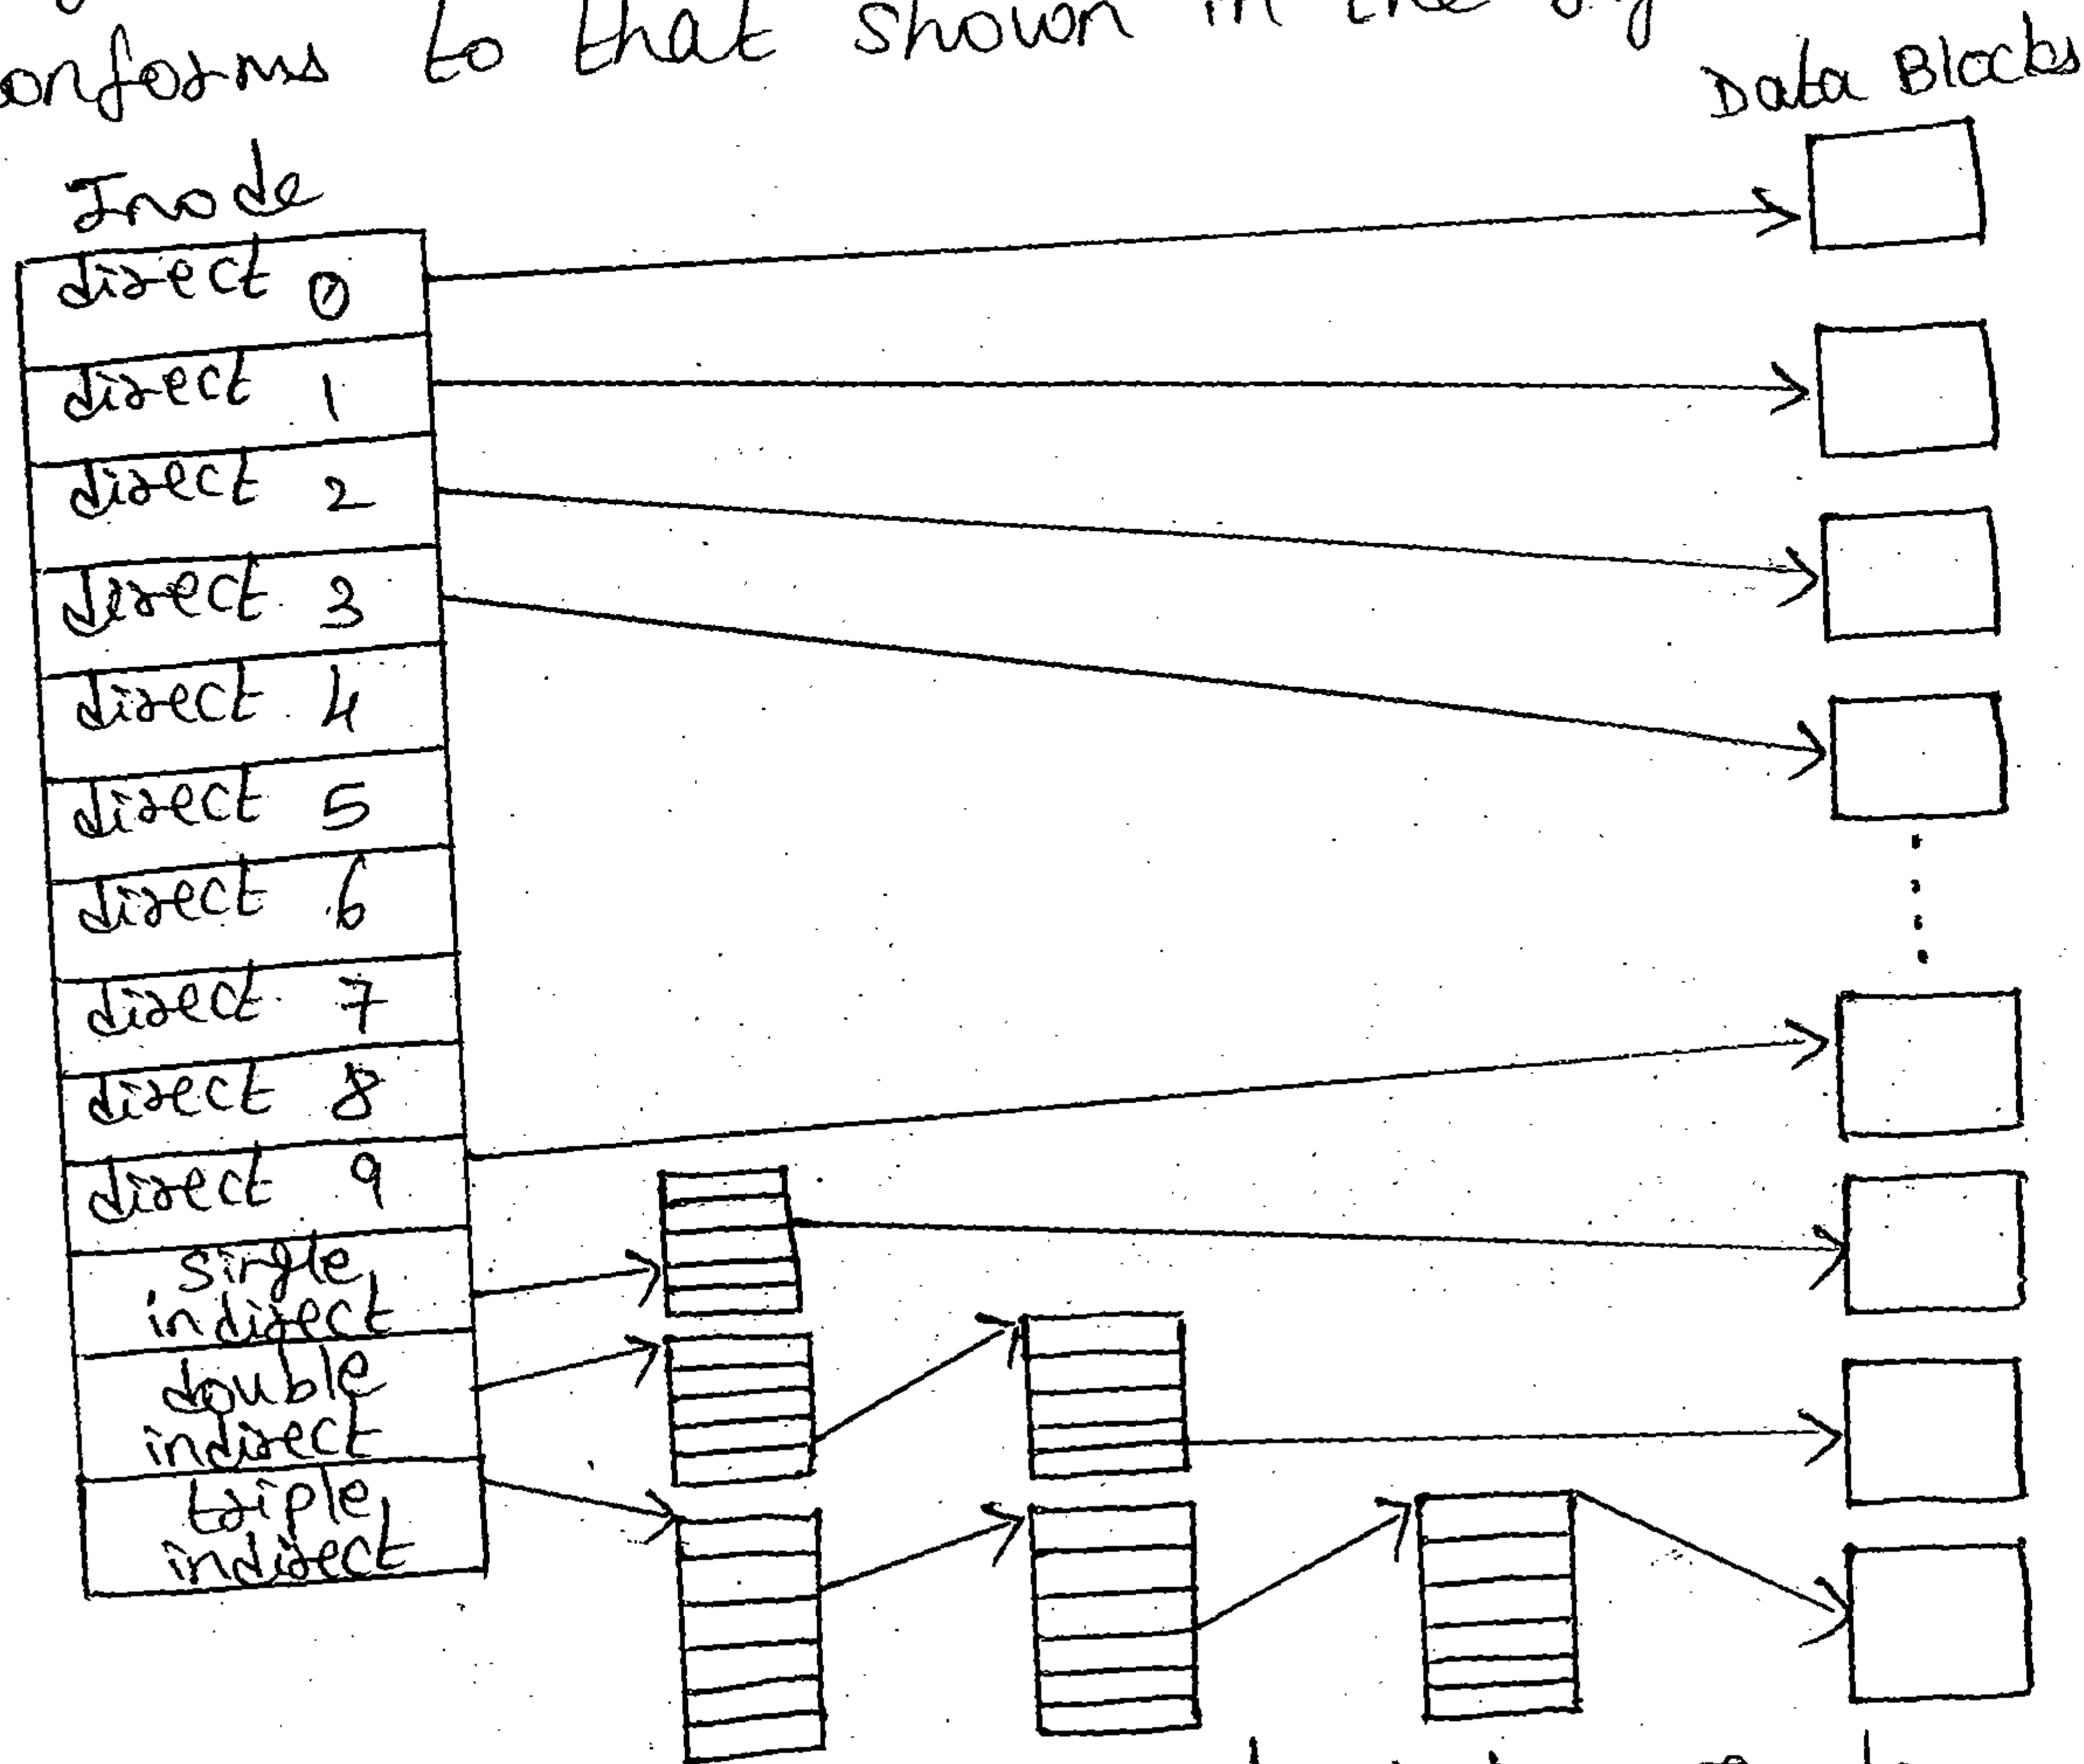 conforms to that shown in the
Data Blocks
Inode
direct 0
direct 1
direct 2
direct 3
direct 4
direct 5
direct 6
direct 7
direct 8
direct 9
single
indirect
double
indirect
triple
indirect